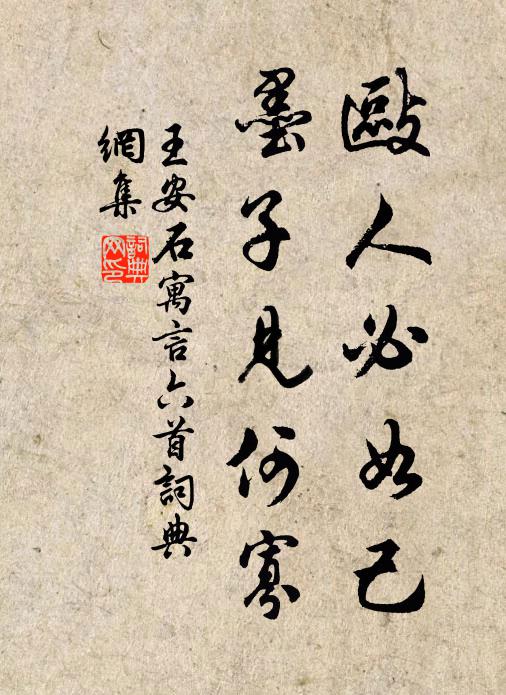 敺人必如己
墨子見何寡
王安石寓言六首詞典
網集
詞典
网印